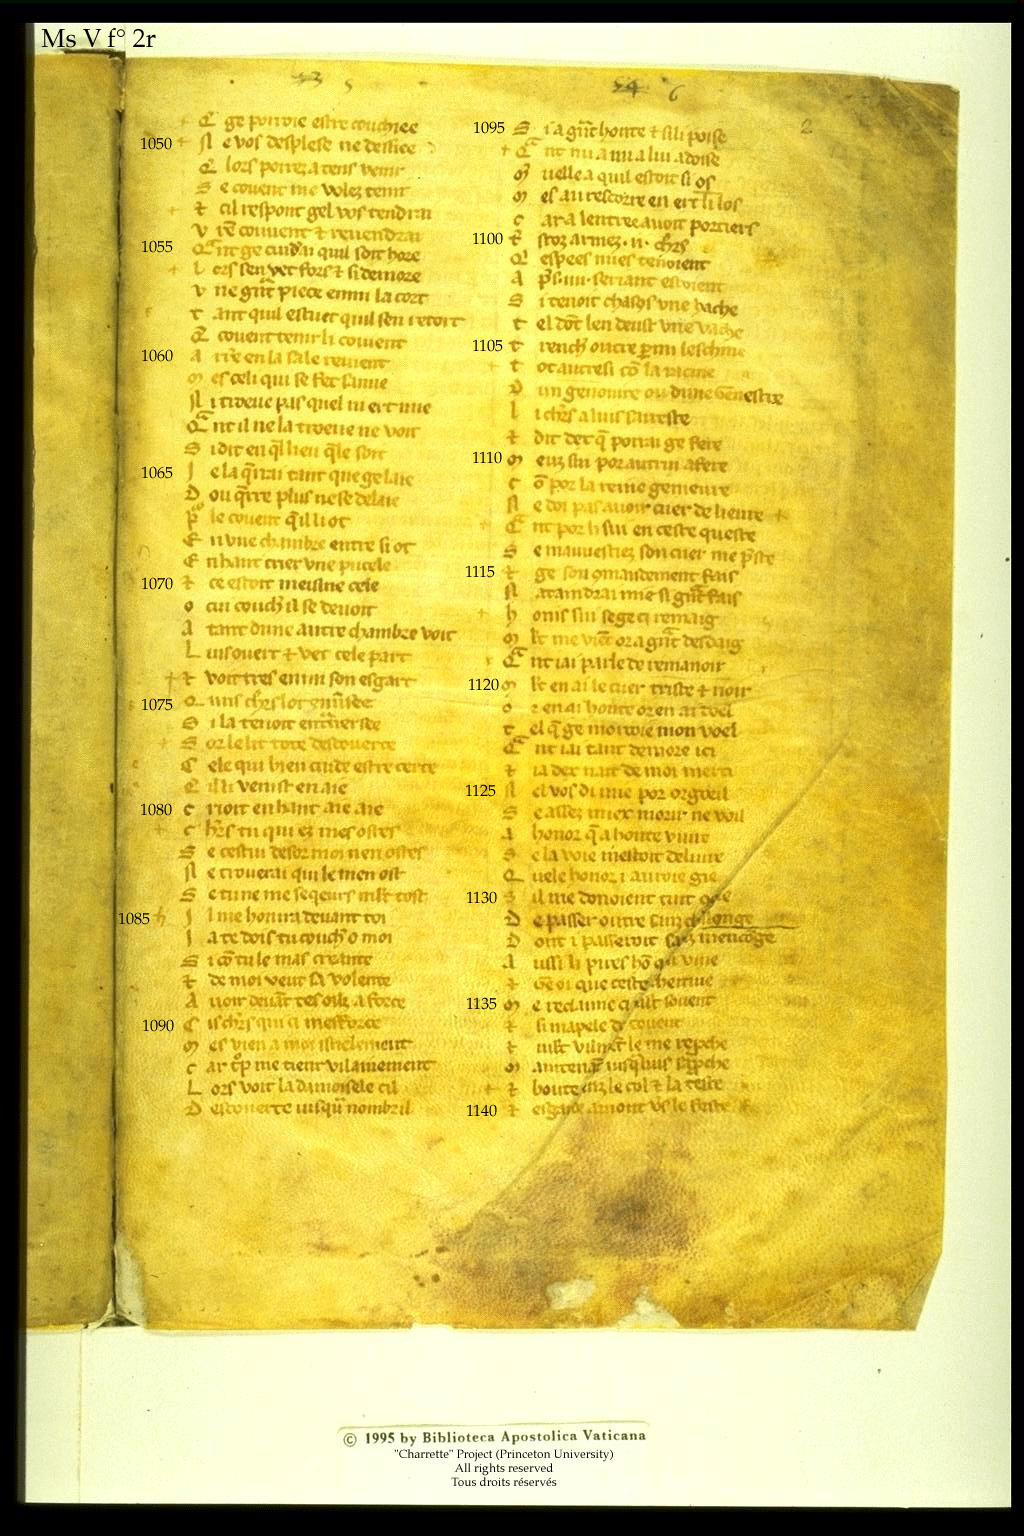 Ms V f° 2r
Q ge porroie estre couchiee
1050 N e vos desplese ne dessiee
Q lors porrez a tens venir
S e covent me volez tenir
& cil respont gel vos tendrai
v covent & revendrai
1055 Q nt ge cuidrai quil soit hore
L ors sen vet fors & si demore
v ne gnt piece enmi la cort
t ant quil estuet quil sen retort
Q covent tenir li covient
1060 A en la sale revient
m es celi qui se fet samie
N i trueve pas quel ni ert mie
Q nt il ne la trueve ne voit
S i dit en ql lieu qle soit
1065 J e la qrrai tant que ge laie
D ou qrre plus ne se delaie
P le covent qil li ot
E n une chambre entre si ot
E n haut crier une pucele
1070 & ce estoit meisme cele
o cui couch il se devoit
A tant dune autre chambre voit
L uis overt & vet cele part
& voit tres enmi son esgart
1075 Q uns chrs lot
S i la tenoit
S or le lit tote descoverte
C ele qui bien cuide estre certe
Q il li venist en aie
1080 C rioit en haut aie aie
C hrs tu qui ez mes ostes
S e cestui desor moi nen ostes
N e troverai qui le men ost
S e tu ne me seqeurs mlt tost
1085 J l me honira devant toi
J a te dois tu couch o moi
S i co tu le mas creante
& de moi veut sa volente
A voir devat tes oilz a force
1090 C is chrs qui ci mesforce
m es vien a moi isnelement
C ar tp me tient vilainement
L ors voit la damoisele cil
D escoverte jusqu nombril
1095 S i a gnt honte & si li poise
Q nt nu a nu a lui adoise
m
m es au rescorre en ert li los
C ar a lentree avoit portiers
1100 E stoz armez .ii. chrs
Q espees nues tenoient
A ps .iiii. serjant estoient
S i tenoit chascs une hache
t el dot len deust une vache
1105 t rench outre pmi leschine
t ot autresi co la racine
D un genoivre ou dune genestre
L i chrs a luis sareste
& dit dex q porrai ge fere
1110 m euz sui por autrui afere
C o por la reine genievre
N e doi pas avoir cuer de lievre
Q nt por li sui en ceste queste
S e mauvestiez son cuer me pste
1115 & ge son comandement fais
N ataindrai mie si gnt fais
h onis sui se ge ci remaig
m lt me vient or a gnt desdaig
Q nt jai parle de remanoir
1120 m lt en ai le cuer triste & noir
o r en ai honte or en ai doel
t el q ge morroie mon voel
Q nt jai tant demore ici
& ja dex nait de moi merci
1125 N el vos di mie por orgoeil
S e assez miex morir ne voil
A honor q a honte vivre
S e la voie mestoit delivre
Q uele honor i auroie gie
1130 S il me donoient tuit
D e passer outre sanz
D ont i passeroit sanz mencoge
A ussi li pires ho
& ge oi que ceste
1135 m e reclaime souvent
& si mapele covent
& mlt vilmt le me repche
m aintenat jusqa luis sapche
& boute enz le col & la teste
1140 & esgarde amont vs le feste
© 1995 by Biblioteca Apostolica Vaticana
"Charrette" Project (Princeton University)
All rights reserved
Tous droits réservés